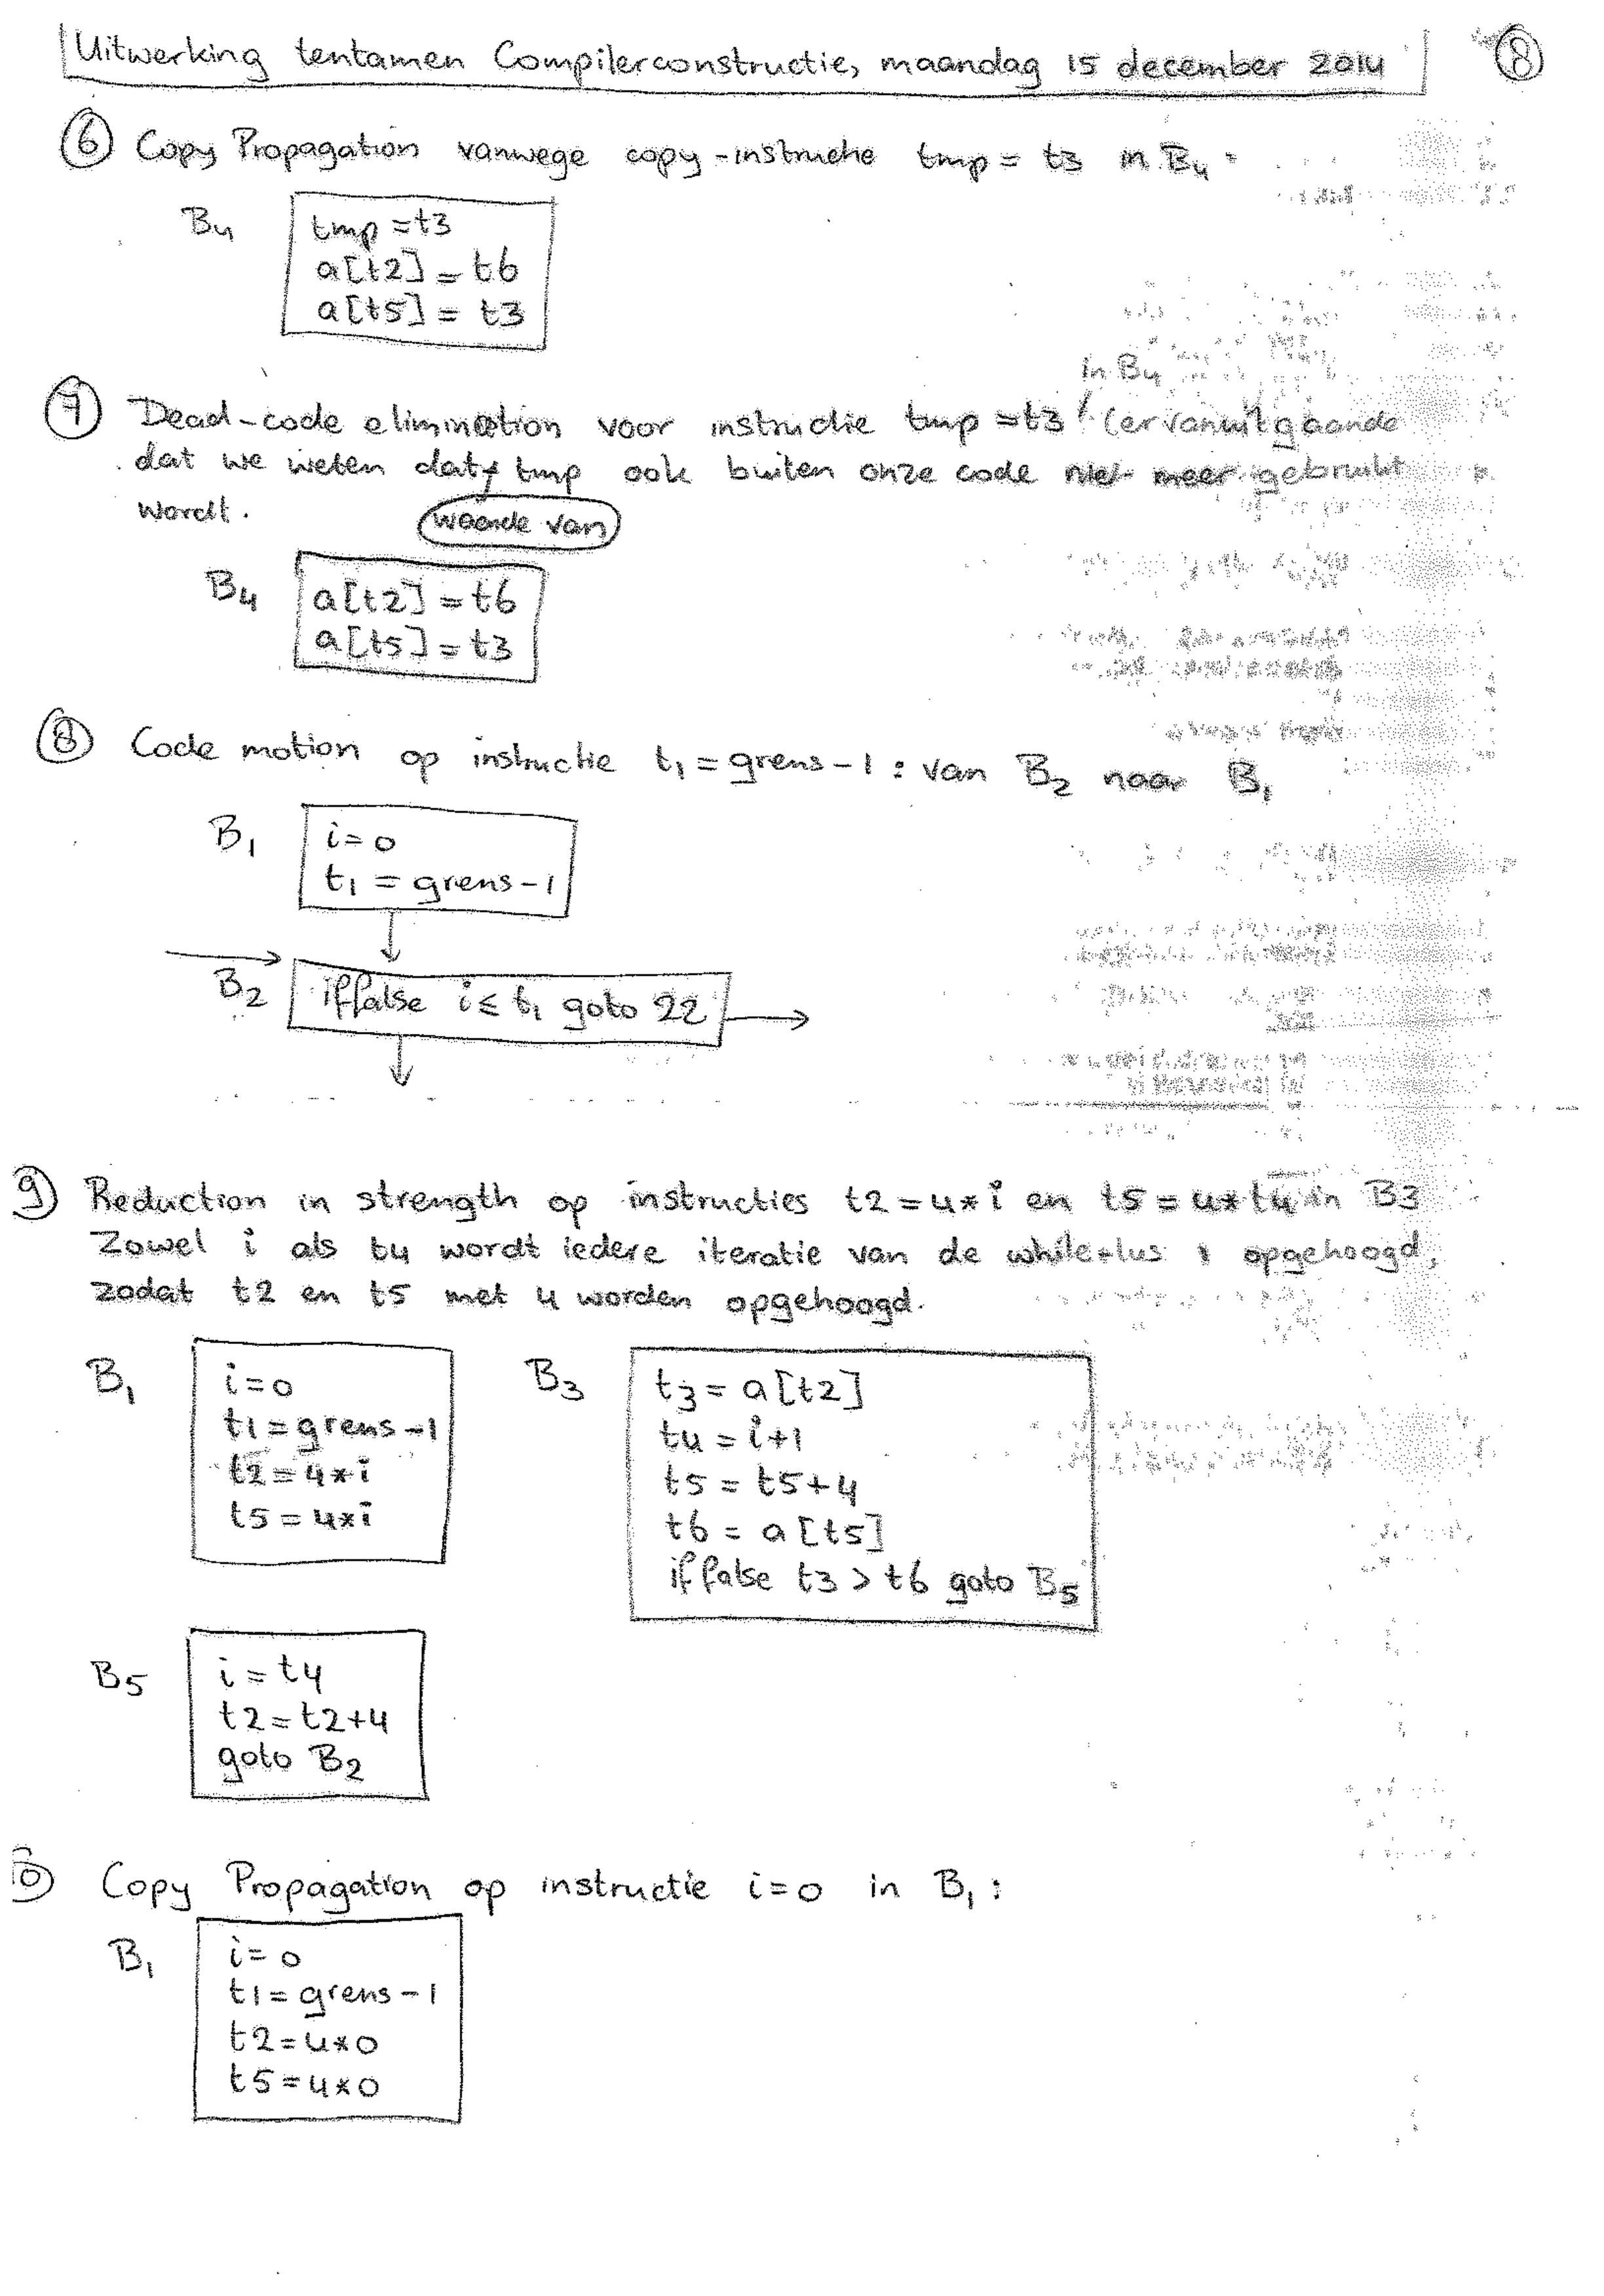 Uitwerking tentamen Compilerconstructie, maandag 15 december 2014
8
6 Copy Propagation vanwege copy-instructie tmp = t3 in B4 :
B4
tmp = t3
a[t2] = t6
a[t5] = t3
in B4
7 Dead-code elimination voor instructie tmp = t3 (ervanuitgaande
dat we weten dat tmp ook buiten onze code niet meer gebruikt
wordt.
waarde van
B4
a[t2] = t6
a[t5] = t3
8 Code motion op instructie t1 = grens-1 : van B2 naar B1
B1
i = 0
t1 = grens-1
B2
iffalse i ≤ t1 goto 22
9 Reduction in strength op instructies t2 = 4*i en t5 = 4*t4 in B3
Zowel i als t4 wordt iedere iteratie van de while-lus 1 opgehoogd,
zodat t2 en t5 met 4 worden opgehoogd.
B1
i = 0
t1 = grens-1
t2 = 4*i
t5 = 4*i
B3
t3 = a[t2]
t4 = i+1
t5 = t5+4
t6 = a[t5]
iffalse t3 > t6 goto B5
B5
i = t4
t2 = t2+4
goto B2
Copy Propagation op instructie i=0 in B1 :
B1
i = 0
t1 = grens-1
t2 = 4*0
t5 = 4*0